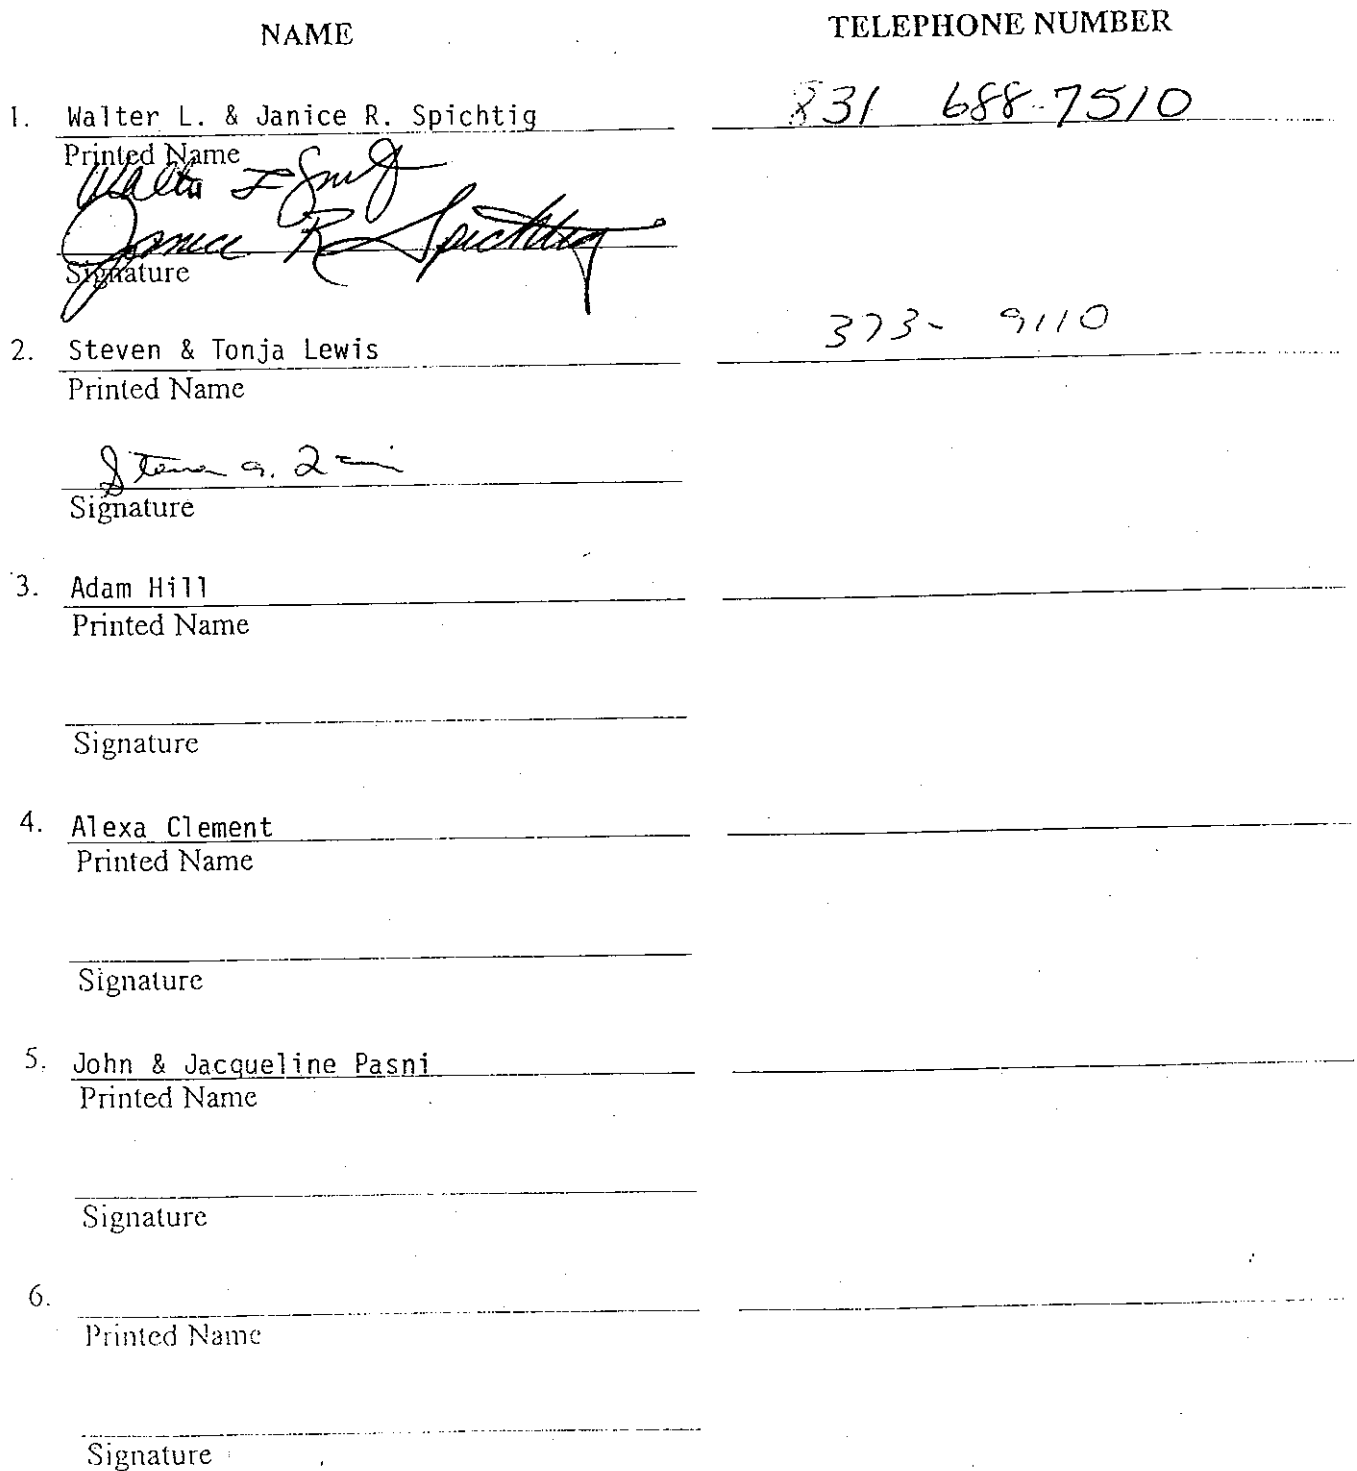 NAME TELEPHONE NUMBER
1. Walter L. & Janice R. Spichtig 831 688-7510
Printed Name
Walter
Janice R Spichtig
Signature
373- 9110
2. Steven & Tonja Lewis
Printed Name
Steven a.
Signature
3. Adam Hill
Printed Name
Signature
4. Alexa Clement
Printed Name
Signature
5. John & Jacqueline Pasni
Printed Name
Signature
6.
Printed Name
Signature